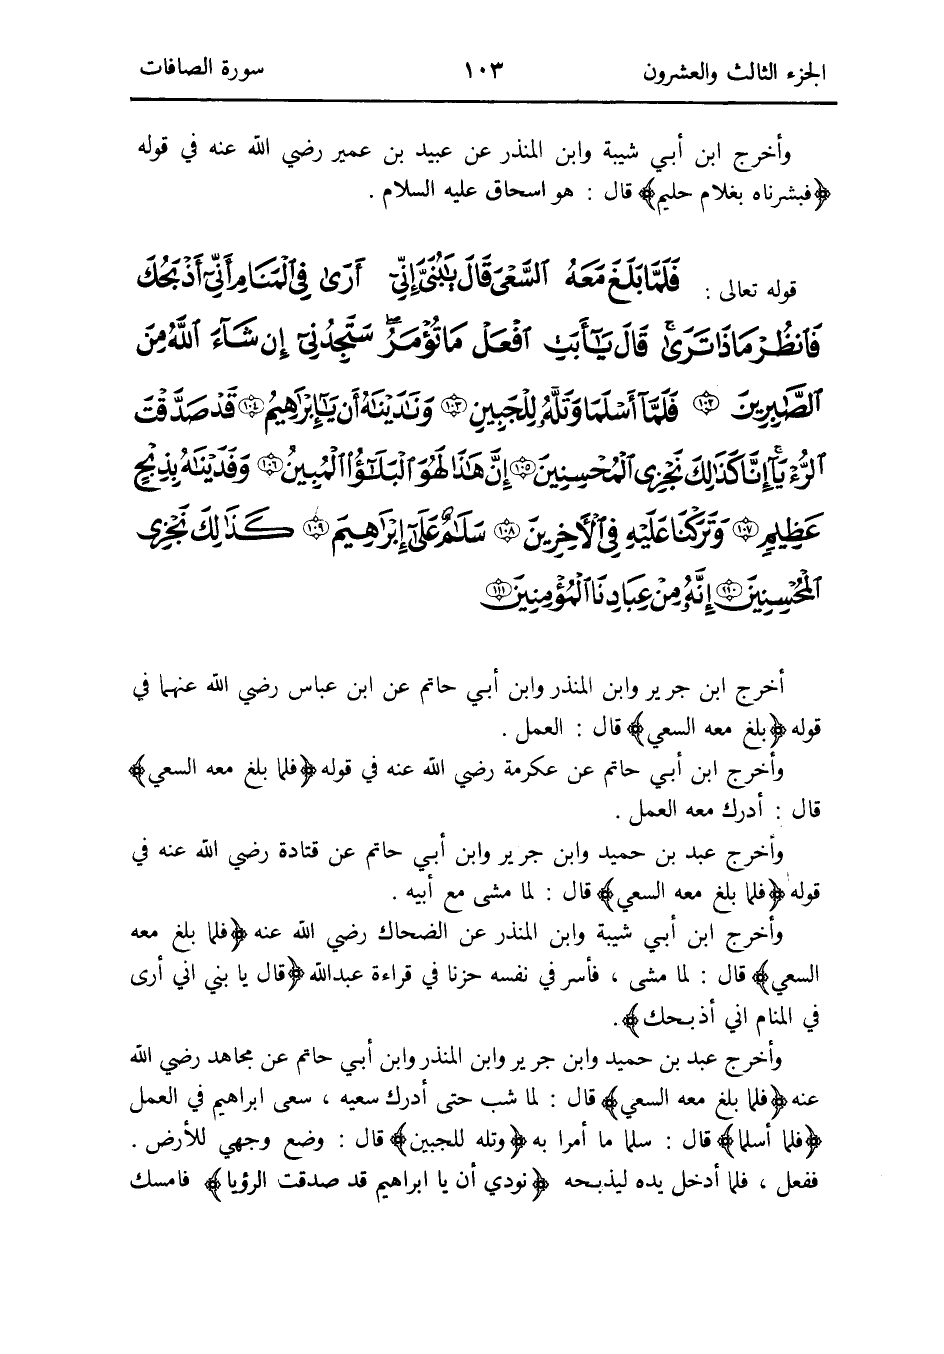 الجزء الثالث والعشرون ١٠٣ سورة الصافات
وأخرج ابن أبي شيبة وابن المنذر عن عبيد بن عمير رضي الله عنه في قوله
﴿فبشرناه بغلام حليم﴾ قال : هو اسحاق عليه السلام .
قوله تعالى : فَلَمَّا بَلَغَ مَعَهُ ٱلسَّعْىَ قَالَ يَٰبُنَىَّ إِنِّىٓ أَرَىٰ فِى ٱلْمَنَامِ أَنِّىٓ أَذْبَحُكَ
فَٱنظُرْ مَاذَا تَرَىٰۚ قَالَ يَٰٓأَبَتِ ٱفْعَلْ مَا تُؤْمَرُۖ سَتَجِدُنِىٓ إِن شَآءَ ٱللَّهُ مِنَ
ٱلصَّٰبِرِينَ ۝١٠٢ فَلَمَّآ أَسْلَمَا وَتَلَّهُۥ لِلْجَبِينِ ۝١٠٣ وَنَٰدَيْنَٰهُ أَن يَٰٓإِبْرَٰهِيمُ ۝١٠٤ قَدْ صَدَّقْتَ
ٱلرُّءْيَآۚ إِنَّا كَذَٰلِكَ نَجْزِى ٱلْمُحْسِنِينَ ۝١٠٥ إِنَّ هَٰذَا لَهُوَ ٱلْبَلَٰٓؤُا۟ ٱلْمُبِينُ ۝١٠٦ وَفَدَيْنَٰهُ بِذِبْحٍ
عَظِيمٍ ۝١٠٧ وَتَرَكْنَا عَلَيْهِ فِى ٱلْأَخِرِينَ ۝١٠٨ سَلَٰمٌ عَلَىٰٓ إِبْرَٰهِيمَ ۝١٠٩ كَذَٰلِكَ نَجْزِى
ٱلْمُحْسِنِينَ ۝١١٠ إِنَّهُۥ مِنْ عِبَادِنَا ٱلْمُؤْمِنِينَ ۝١١١
أخرج ابن جرير وابن المنذر وابن أبي حاتم عن ابن عباس رضي الله عنهما في
قوله ﴿بلغ معه السعي﴾ قال : العمل .
وأخرج ابن أبي حاتم عن عكرمة رضي الله عنه في قوله ﴿فلما بلغ معه السعي﴾
قال : أدرك معه العمل .
وأخرج عبد بن حميد وابن جرير وابن أبي حاتم عن قتادة رضي الله عنه في
قوله ﴿فلما بلغ معه السعي﴾ قال : لما مشى مع أبيه .
وأخرج ابن أبي شيبة وابن المنذر عن الضحاك رضي الله عنه ﴿فلما بلغ معه
السعي﴾ قال : لما مشى ، فأسر في نفسه حزنا في قراءة عبدالله ﴿قال يا بني اني أرى
في المنام اني أذبحك﴾.
وأخرج عبد بن حميد وابن جرير وابن المنذر وابن أبي حاتم عن مجاهد رضي الله
عنه ﴿فلما بلغ معه السعي﴾ قال : لما شب حتى أدرك سعيه ، سعى ابراهيم في العمل
﴿فلما أسلما﴾ قال : سلما ما أمرا به ﴿وتله للجبين﴾ قال : وضع وجهي للأرض .
ففعل ، فلما أدخل يده ليذبحه ﴿نودي أن يا ابراهيم قد صدقت الرؤيا﴾ فامسك